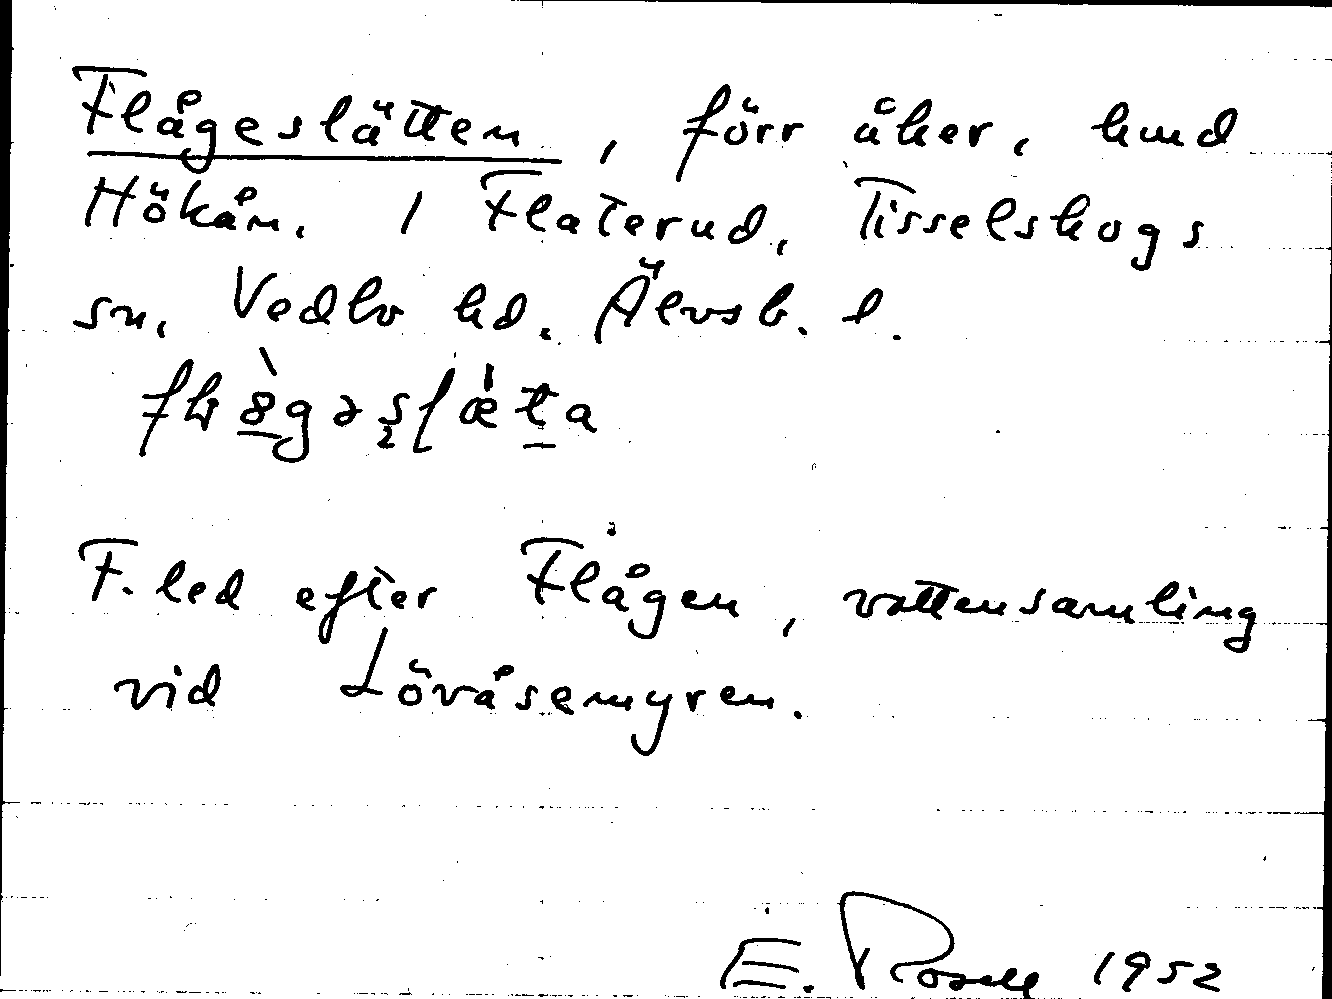 Flågeslätten, förr åker, hmd
Hökån. / Flaterud, Tisselskogs
sn, Vedbo hd. Älvsb. l.
F.led efter Flågen, vattensamling
vid Lövåsemyren.
E. Rosell 1952